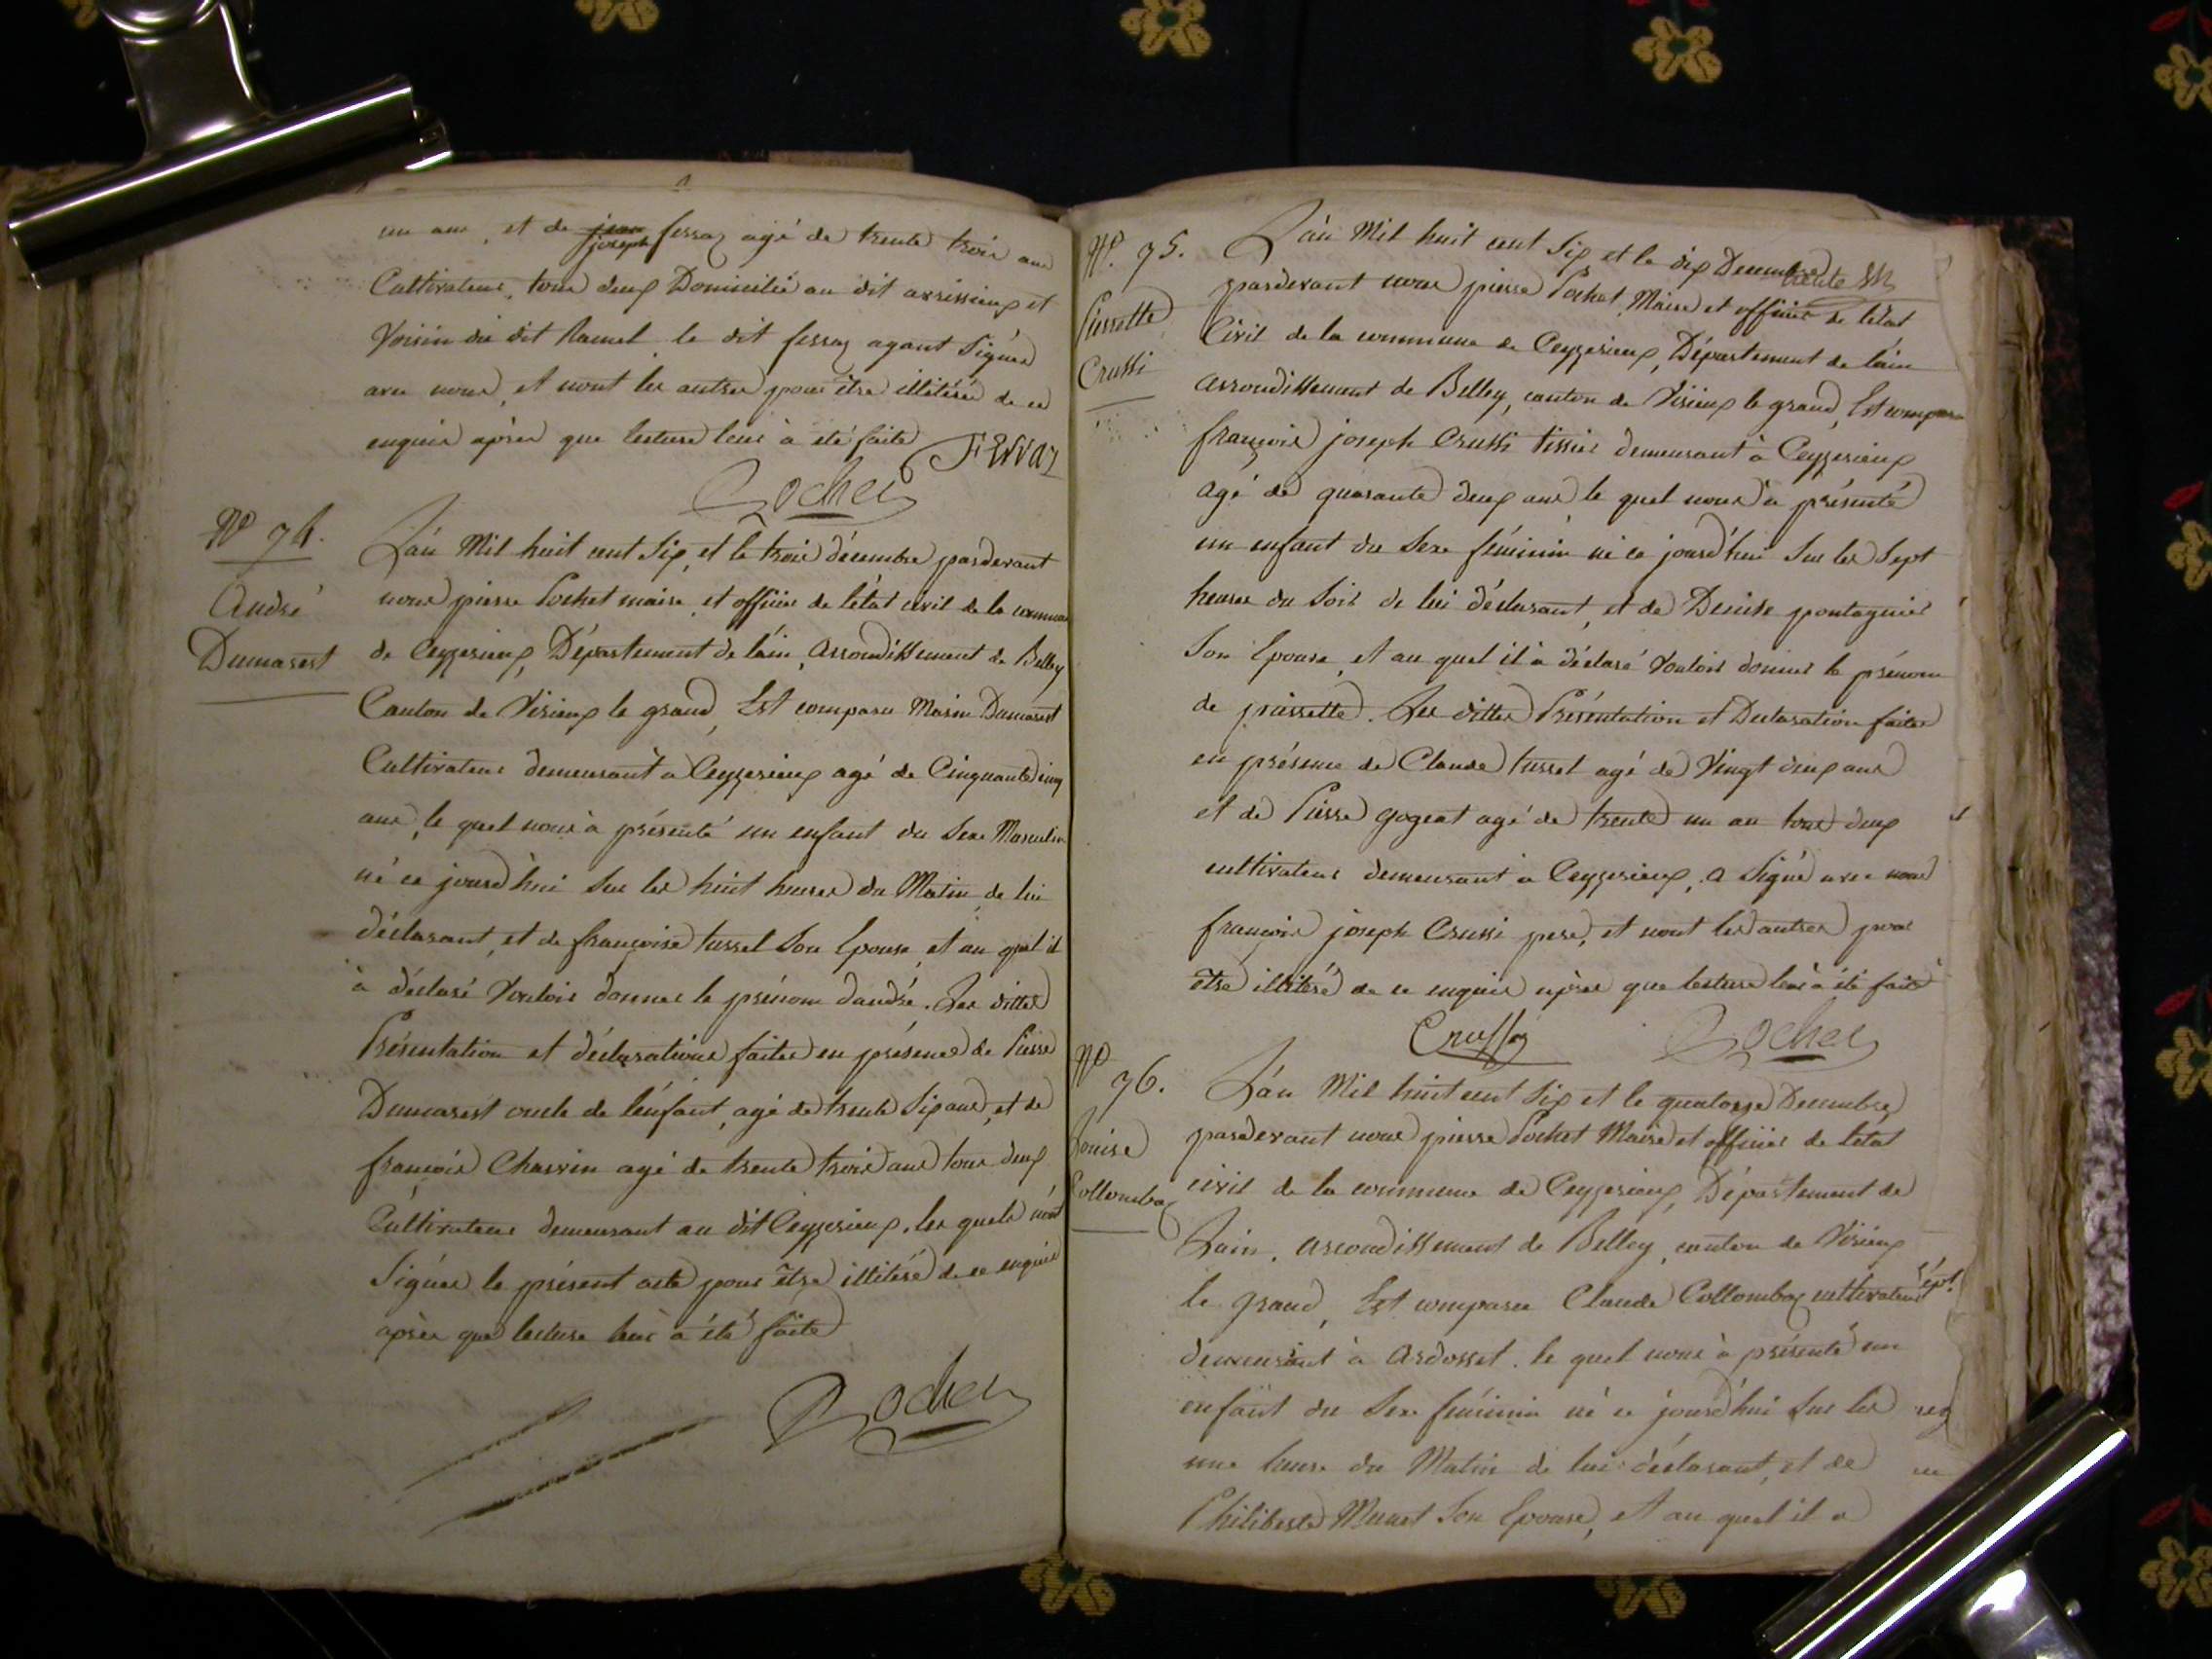 un ans, et de jean joseph ferraz agé de trente trois ans
Cultivateurs, tous deux Domiciliés au dit avrissieux et
Voisin du dit Ramel le dit ferraz ayant Signée
avec nous, et nont les autres pour être illitéré de ce
enquis après que lecture leur à été faite FERRAZ
Pochet
N° 74.
André
Dumarest
L'an Mil huit cent Six, et le trois décembre pardevant
nous pierre Pochet maire et officier de l'état civil de la commune
de Ceyzerieux, Département de l'ain, Arrondissement de Belley
Canton de Virieux le grand, Est comparu Marin Dumarest
Cultivateur demeurant à Ceyzerieux agé de Cinquante cinq
ans, le quel nous à présenté un enfant du Sexe Masculin
né ce jourd'hui Sur les huit heures du Matin, de lui
déclarant, et de françoise tussel Son Epouse, et au quel il
à déclaré Vouloir donner le prénom d'andré. Les dittes
Présentation et déclarations faites en présence de Pierre
Dumarest oncle de l'enfant, agé de trente Six ans, et de
françois Charvin agé de trente trois ans tous deux
Cultivateurs demeurant au dit Ceyzerieux, les quels n'ont
Signés le présent acte pour être illitéré de ce enquis
après que lecture leur à été faite
Pochet
N°. 75.
Pierrette
Crussi
L'an Mil huit cent Six et le dix Decembre
pardevant nous pierre Pochet Maire et officier de l'état
Civil de la commune de Ceyzerieux, Département de l'ain
arrondissement de Belley, canton de Virieux le grand, Est comparu
françois joseph Crussi tissier demeurant à Ceyzerieux
agé de quarante deux ans, le quel nous à présenté
un enfant du Sexe féminin né ce jourd'hui Sur les Sept
heures du Soir de lui déclarant, et de Denise pontagnier
Son Epouse, et au quel il à déclaré Vouloir donner le prénom
de pierrette. Les dittes Présentation et Declaration faites
en présence de Claude tussel agé de Vingt deux ans
et de Pierre gogeat agé de trente un an tous deux
cultivateurs demeurant à Ceyzerieux, a Signé avec nous
françois joseph Crussi pere, et nont les autres pour
être illitéré de ce enquis après que lecture leur à été faite
Crussy Pochet
N° 76.
Louise
Collomba
L'an Mil huit cent Six et le quatorze Decembre
pardevant nous pierre Pochet Maire et officier de l'état
civil de la commune de Ceyzerieux, Département de
Lain, arrondissement de Belley, canton de Virieux
le grand, Est comparu Claude Collomba cultivateur
demeurant à Ardosset. le quel nous à présenté un
enfant du Sexe féminin né ce jourd'hui Sur les
une heure du Matin de lui déclarant, et de
Philiberte Munet Son Epouse, et au quel il a